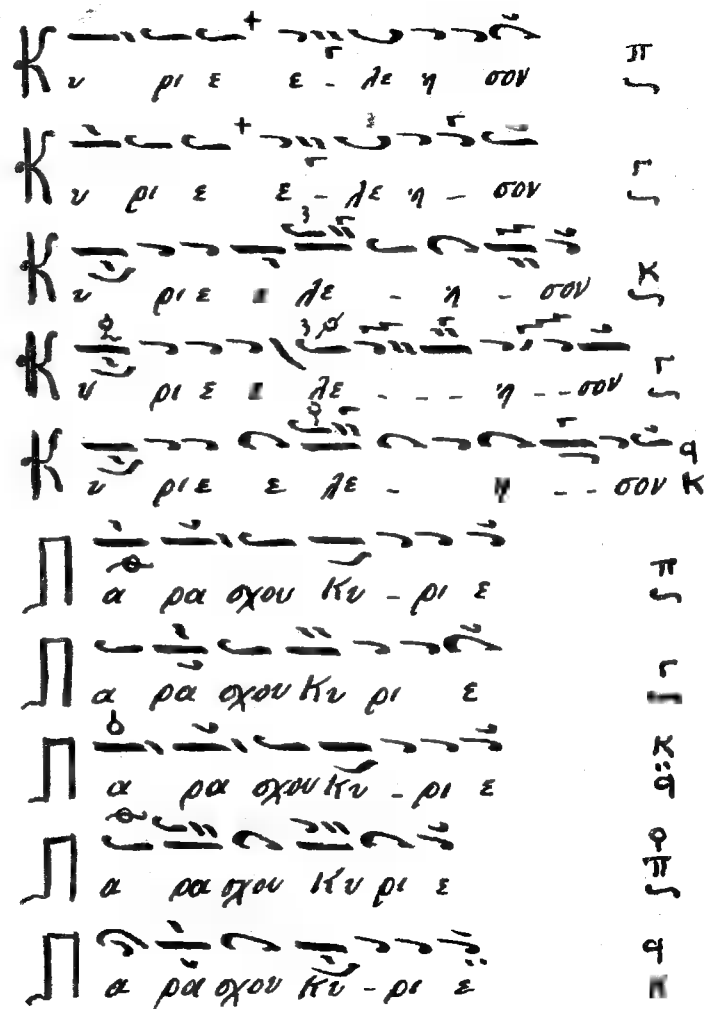 Κυ ρι ε ε - λε η σον π
Κυ ρι ε ε - λε ή - σον Γ
Κυ ρι ε λε - ή - σον κ
Κυ ρι ε λε - - - ή - - σον Γ
Κυ ρι ε ε λε - - - σον q κ
Πα ρα σχου Κυ - ρι ε π
Πα ρα σχου Κυ ρι ε Γ
Πα ρα σχου Κυ - ρι ε κ q
Πα ρα σχου Κυ ρι ε π
Πα ρα σχου Κυ - ρι ε q